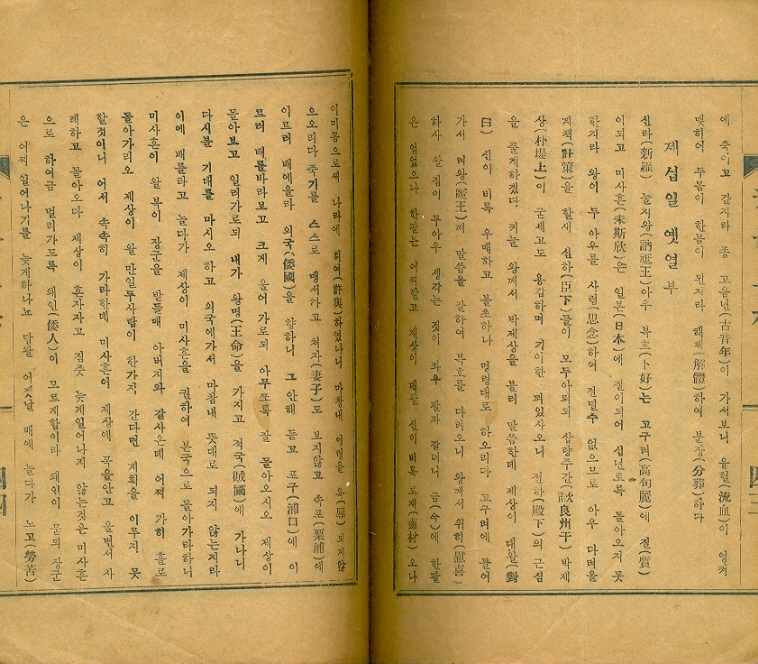 에 죽이고 간지라 종 고음년(古音年)이 가서보니 유혈(流血)이 엉켜
맺히어 두몸이 한몸이 된지라 해체(解體)하여 분장(分葬)하다
제십일 옛열부
신라(新羅) 눌지왕(訥祗王)아우 복호(卜好)는 고구려(高句麗)에 질(質)
이되고 미사흔(未斯欣)은 일본(日本)에 질이되어 십년토록 돌아오지 못
한지라 왕이 두 아우를 사렴(思念)하여 견딜수 없으므로 아우 다려올
게책(計策)을 할새 신하(臣下)들이 모두아뢰되 삽량주간(歃良州干) 박제
상(朴堤上)이 굳세고도 용감하며 기이한 꾀있사오니 전하(殿下)의 근심
을 풀게하겠다 커늘 왕께서 박제상을 불러 말씀한데 제상이 대왈(對
曰) 신이 비록 우매하고 불초하나 명령대로 하오리다 고구려에 들어
가서 려왕(麗王)께 말씀을 잘하여 복호를 다려오니 왕께서 위히(慰喜)
하사 왈 짐이 두아우 생각는 것이 좌우 팔과 같더니 금(今)에 한팔
은 얻었으나 한팔는 어찌할고 제상이 대왈 신이 비록 노재(鹵材) 오나
이미몸으로써 나라에 허여(許與)하였나니 마참내 명령을 욕(辱) 되게않
으오리다 죽기를 스스로 맹서하고 처자(妻子)도 보지않고 속포(栗浦)에
이르러 배에올라 외국(倭國)을 향하니 그 안해 듣고 포구(浦口)에 이
르러 배를바라보고 크게 울어 가로되 아무쪼록 잘 돌아오시오 제상이
돌아보고 일러가로되 내가 왕명(王命)을 가지고 적국(賊國)에 가나니
다시볼 기대를 마시오 하고 외국에가서 마참내 뜻대로 되지 않는지라
이에 배를타고 놀다가 제상이 미사흔을 권하여 본국으로 돌아가라하니
미사흔이 왈 복이 장군을 받들매 아버지와 같사온데 어찌 가히 홀로
돌아가리오 제상이 왈 만일두사람이 한가지 간다면 계획을 이루지 못
할것이니 어서 속속히 가라한데 미사흔이 제상에 목을안고 울면서 사
례하고 돌아오다 제상이 혼자자고 짐짓 늦게일어나지 않는것은 미사흔
으로 하여금 멀리가도록 왜인(倭人)이 모르게함이라 왜인이 묻되 장군
은 어찌 일어나기를 늦게하나뇨 답왈 어젯날 배에 놀다가 노고(勞苦)